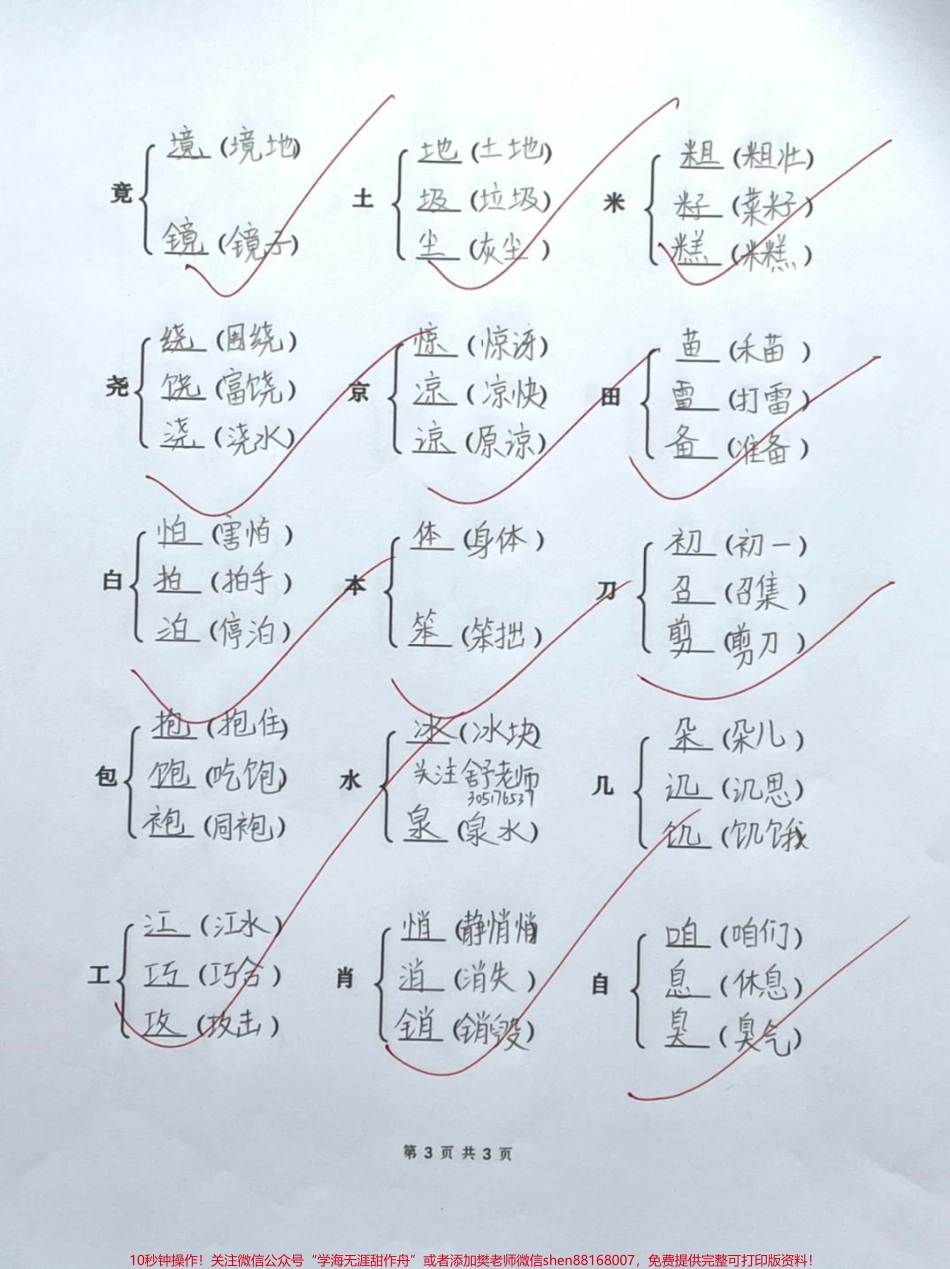 竟
境 (境地)
镜 (镜子)
土
地 (土地)
圾 (垃圾)
尘 (灰尘)
米
粗 (粗壮)
籽 (菜籽)
糕 (米糕)
尧
绕 (围绕)
饶 (富饶)
浇 (浇水)
京
惊 (惊讶)
凉 (凉快)
谅 (原谅)
田
苗 (禾苗)
雷 (打雷)
备 (准备)
白
怕 (害怕)
拍 (拍手)
泊 (停泊)
本
体 (身体)
笨 (笨拙)
刀
初 (初一)
召 (召集)
剪 (剪刀)
包
抱 (抱住)
饱 (吃饱)
袍 (同袍)
水
冰 (冰块)
关注舒老师
305176537
泉 (泉水)
几
朵 (朵儿)
讥 (讥思)
饥 (饥饿)
工
江 (江水)
巧 (巧合)
攻 (攻击)
肖
悄 (静悄悄)
消 (消失)
销 (销毁)
自
咱 (咱们)
息 (休息)
臭 (臭气)
第 3 页 共 3 页
10秒钟操作！关注微信公众号“学海无涯甜作舟”或者添加樊老师微信shen88168007，免费提供完整可打印版资料！